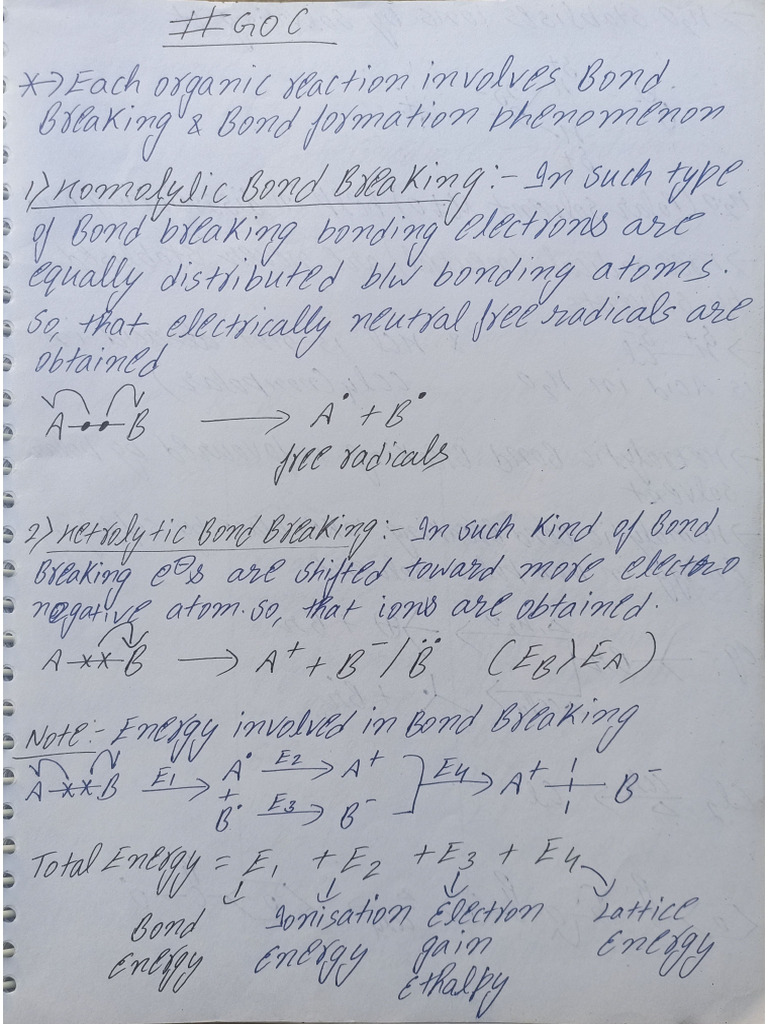 #GOC
*→ Each organic reaction involves Bond
Breaking & Bond formation phenomenon
1) Homolylic Bond Breaking :- In such type
of Bond breaking bonding electrons are
equally distributed b/w bonding atoms.
So, that electrically neutral free radicals are
obtained
A-••-B → A• + B•
free radicals
2) Hetrolytic Bond Breaking :- In such kind of Bond
Breaking e⊖s are shifted toward more electro
negative atom. so, that ions are obtained.
A-××-B → A⁺ + B⁻/B̈ (EB > EA)
Note:- Energy involved in Bond Breaking
A-××-B E₁→ A• E₂→ A⁺ ] E₄→ A⁺ -¦- B⁻
+
B• E₃→ B⁻
Total Energy = E₁ + E₂ + E₃ + E₄
Bond Ionisation Electron Lattice
Energy Energy gain Energy
Ethalpy